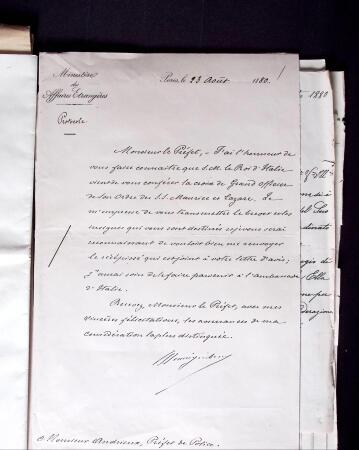 Ministère
des
Affaires Etrangères
Protocole
Paris, le 23 Août 1880.
Monsieur le Préfet, - J'ai l'honneur de
vous faire connaître que S.M. le Roi d'Italie
vient de vous conférer la croix de Grand officier
de son Ordre des S.S. Maurice et Lazare. Je
m'empresse de vous transmettre le brevet et les
insignes qui vous sont destinés et je vous serai
reconnaissant de vouloir bien me renvoyer
le récépissé qui est joint à votre lettre d'avis;
J'aurai soin de le faire parvenir à l'ambassade
d'Italie.
Recevez, Monsieur le Préfet, avec mes
sincères félicitations, les assurances de ma
considération la plus distinguée.
à Monsieur Andrieux, Préfet de Police.
1880